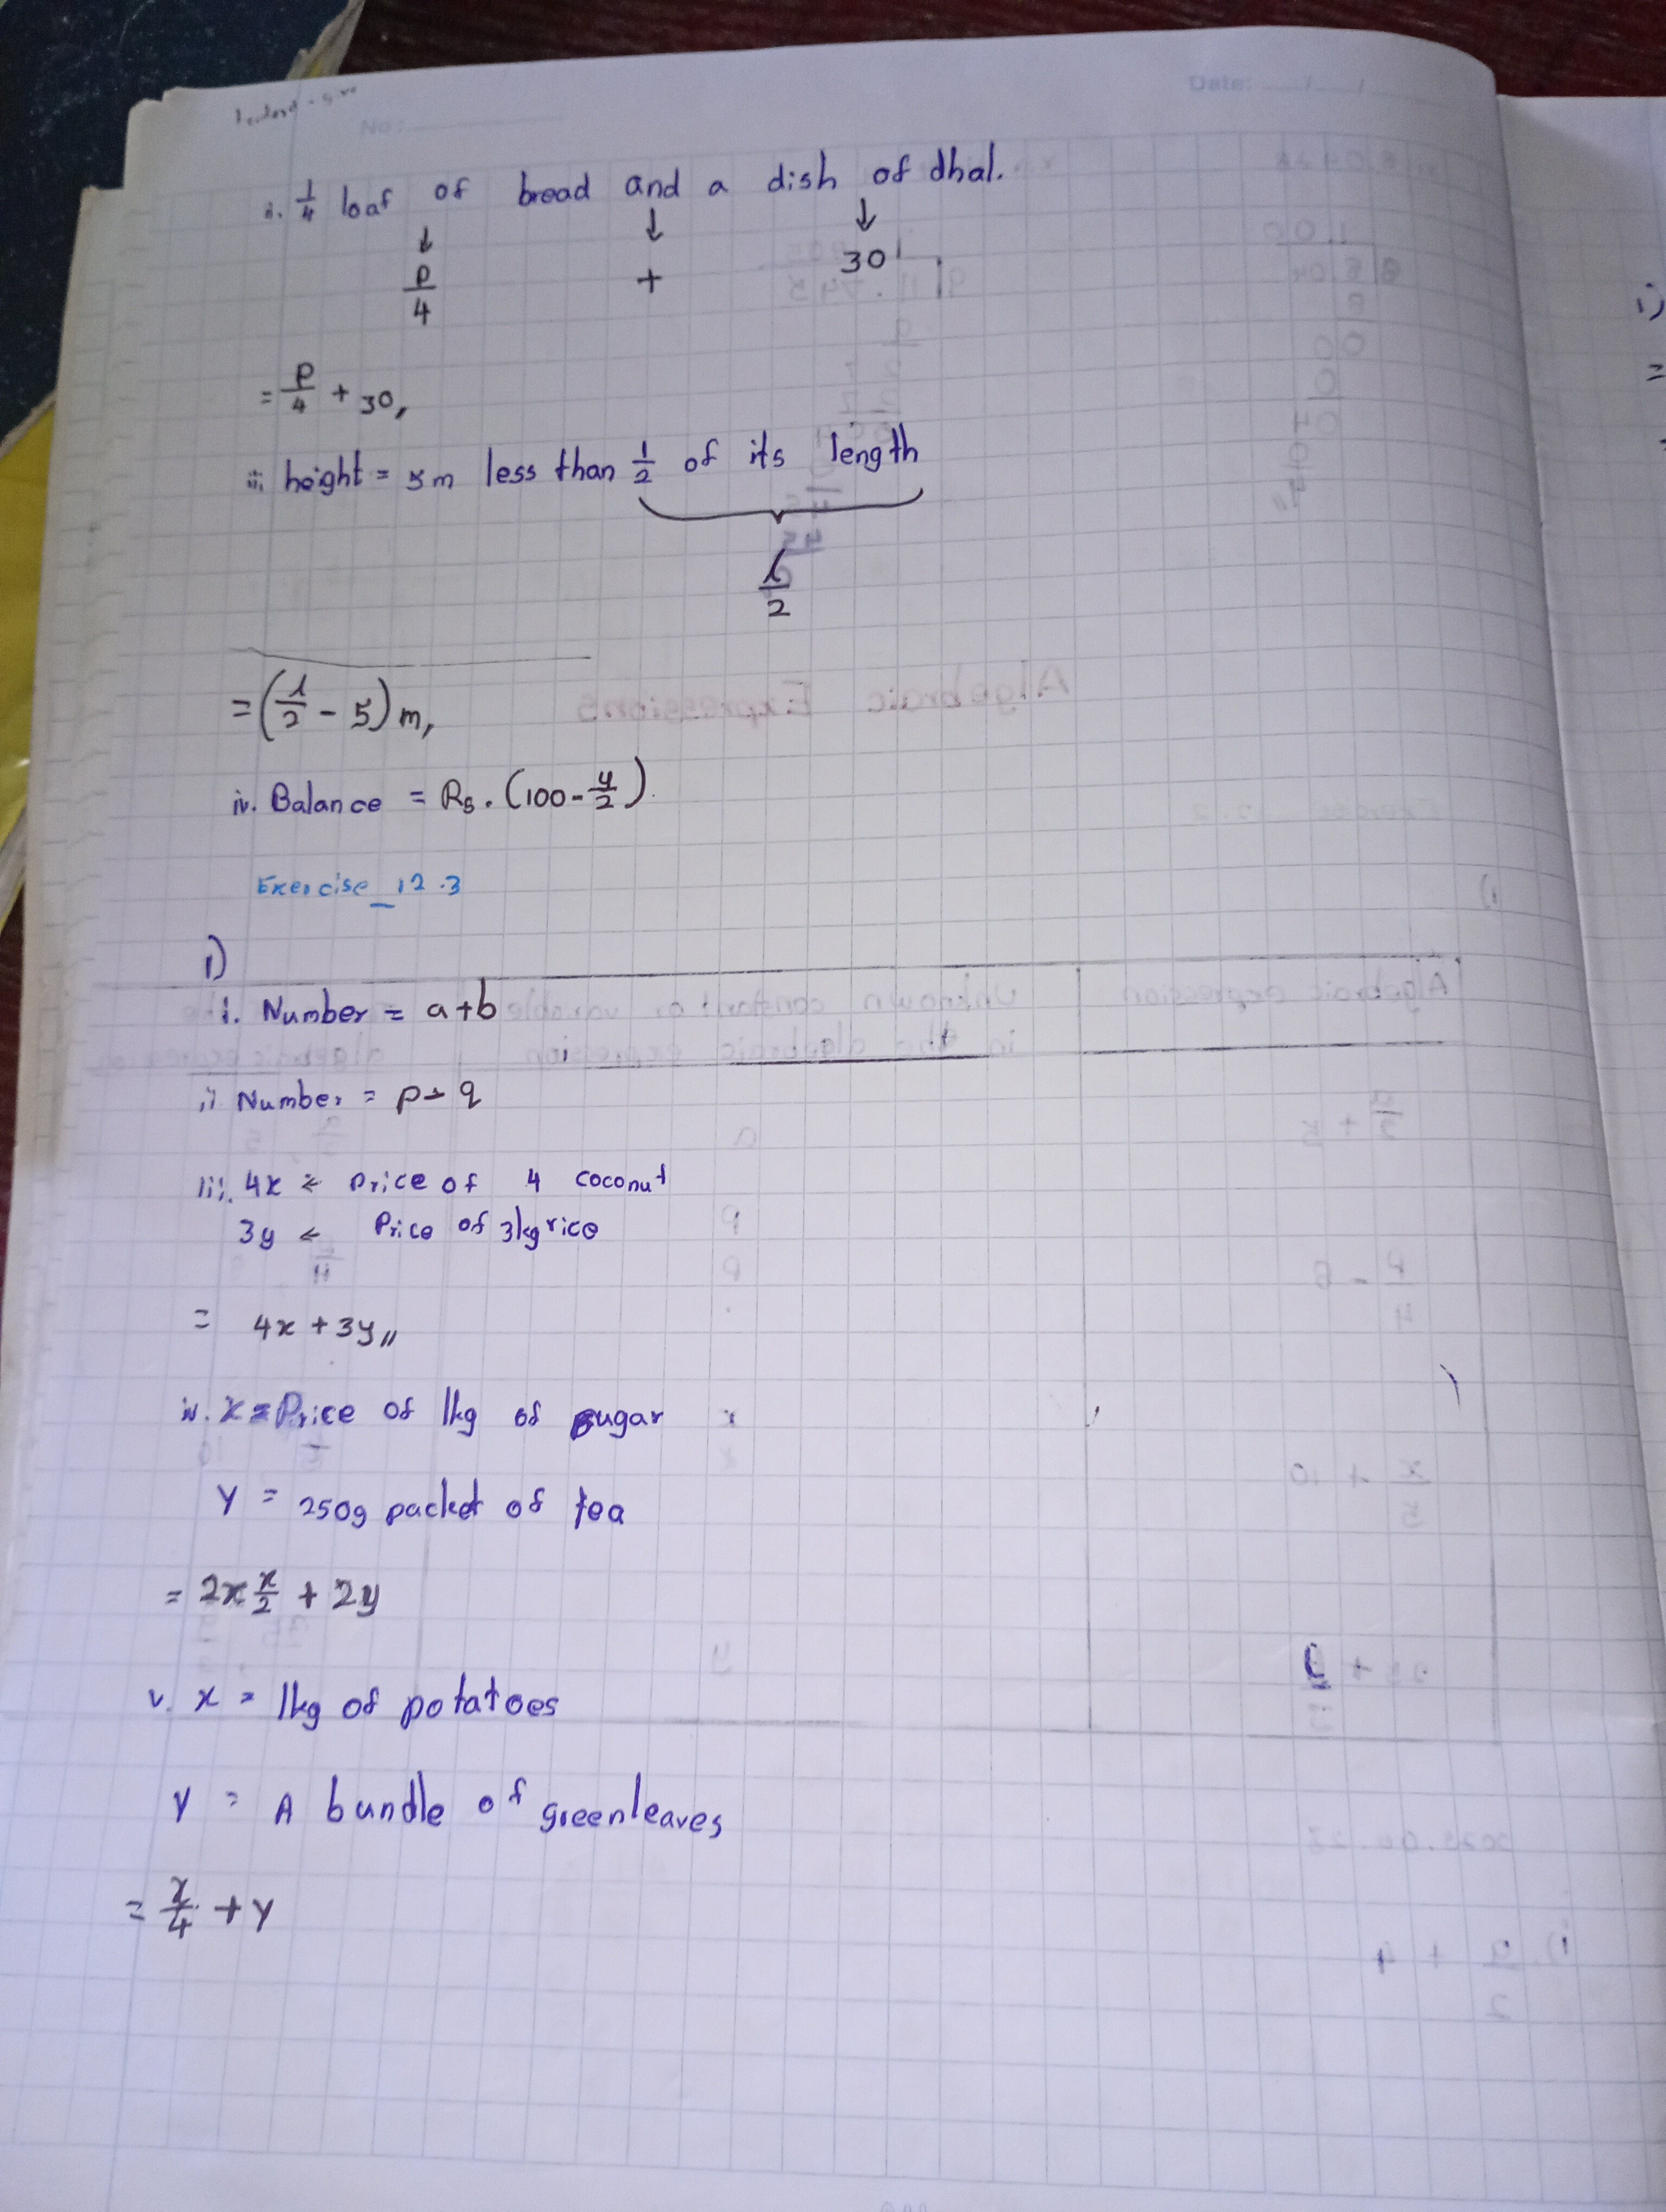 No:
Date: / /
ii. 1/4 loaf of bread and a dish of dhal.
↓ ↓ ↓
p/4 + 30
= p/4 + 30,
iii. height = 5m less than 1/2 of its length
l/2
= (l/2 - 5) m,
iv. Balance = Rs. (100 - y/2).
Exercise_12.3
1)
i. Number = a+b
ii Number = p - q
iii. 4x ← price of 4 coconut
3y ← Price of 3kg rice
= 4x + 3y,,
iv. x = Price of 1kg of sugar
y = 250g packet of tea
= 2 x x/2 + 2y
v. x = 1kg of potatoes
y = A bundle of greenleaves
= x/4 + y
i)
=